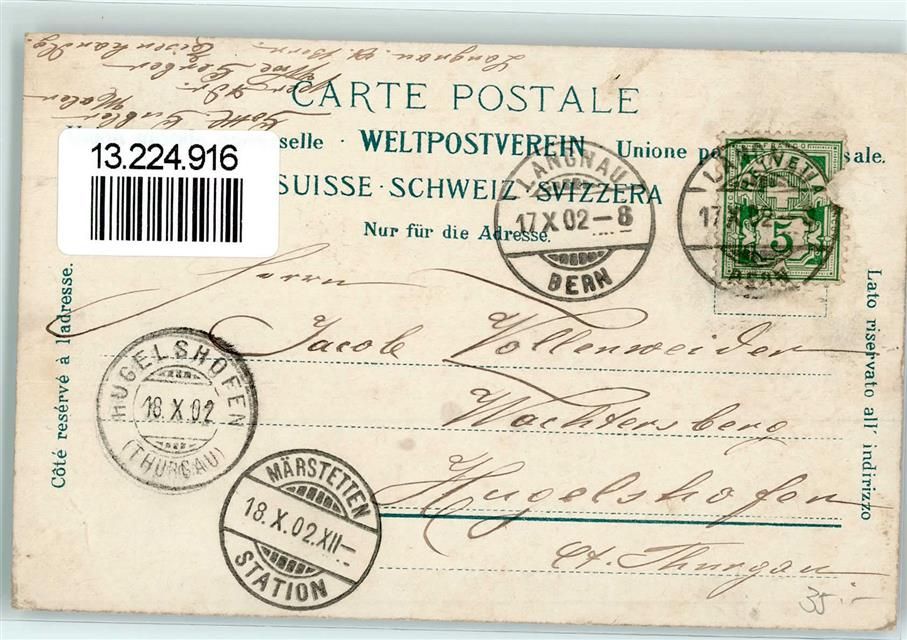 CARTE POSTALE
selle · WELTPOSTVEREIN Unione po sale.
SUISSE · SCHWEIZ SVIZZERA
Nur für die Adresse.
13.224.916
Langnau
Gottl.
LANGNAU
17.X.02–8
BERN
LANGNAU
17.X.02
BERN
HELVETIA
5
Côté reservé à l'adresse.
Lato riservato all' indirizzo
Herrn
Jacob Vollenweider
Wachtersberg
Hugelshofen
Ct. Thurgau
HUGELSHOFEN
18.X.02
(THURGAU)
MÄRSTETTEN
18.X.02.XII–
STATION
35.-